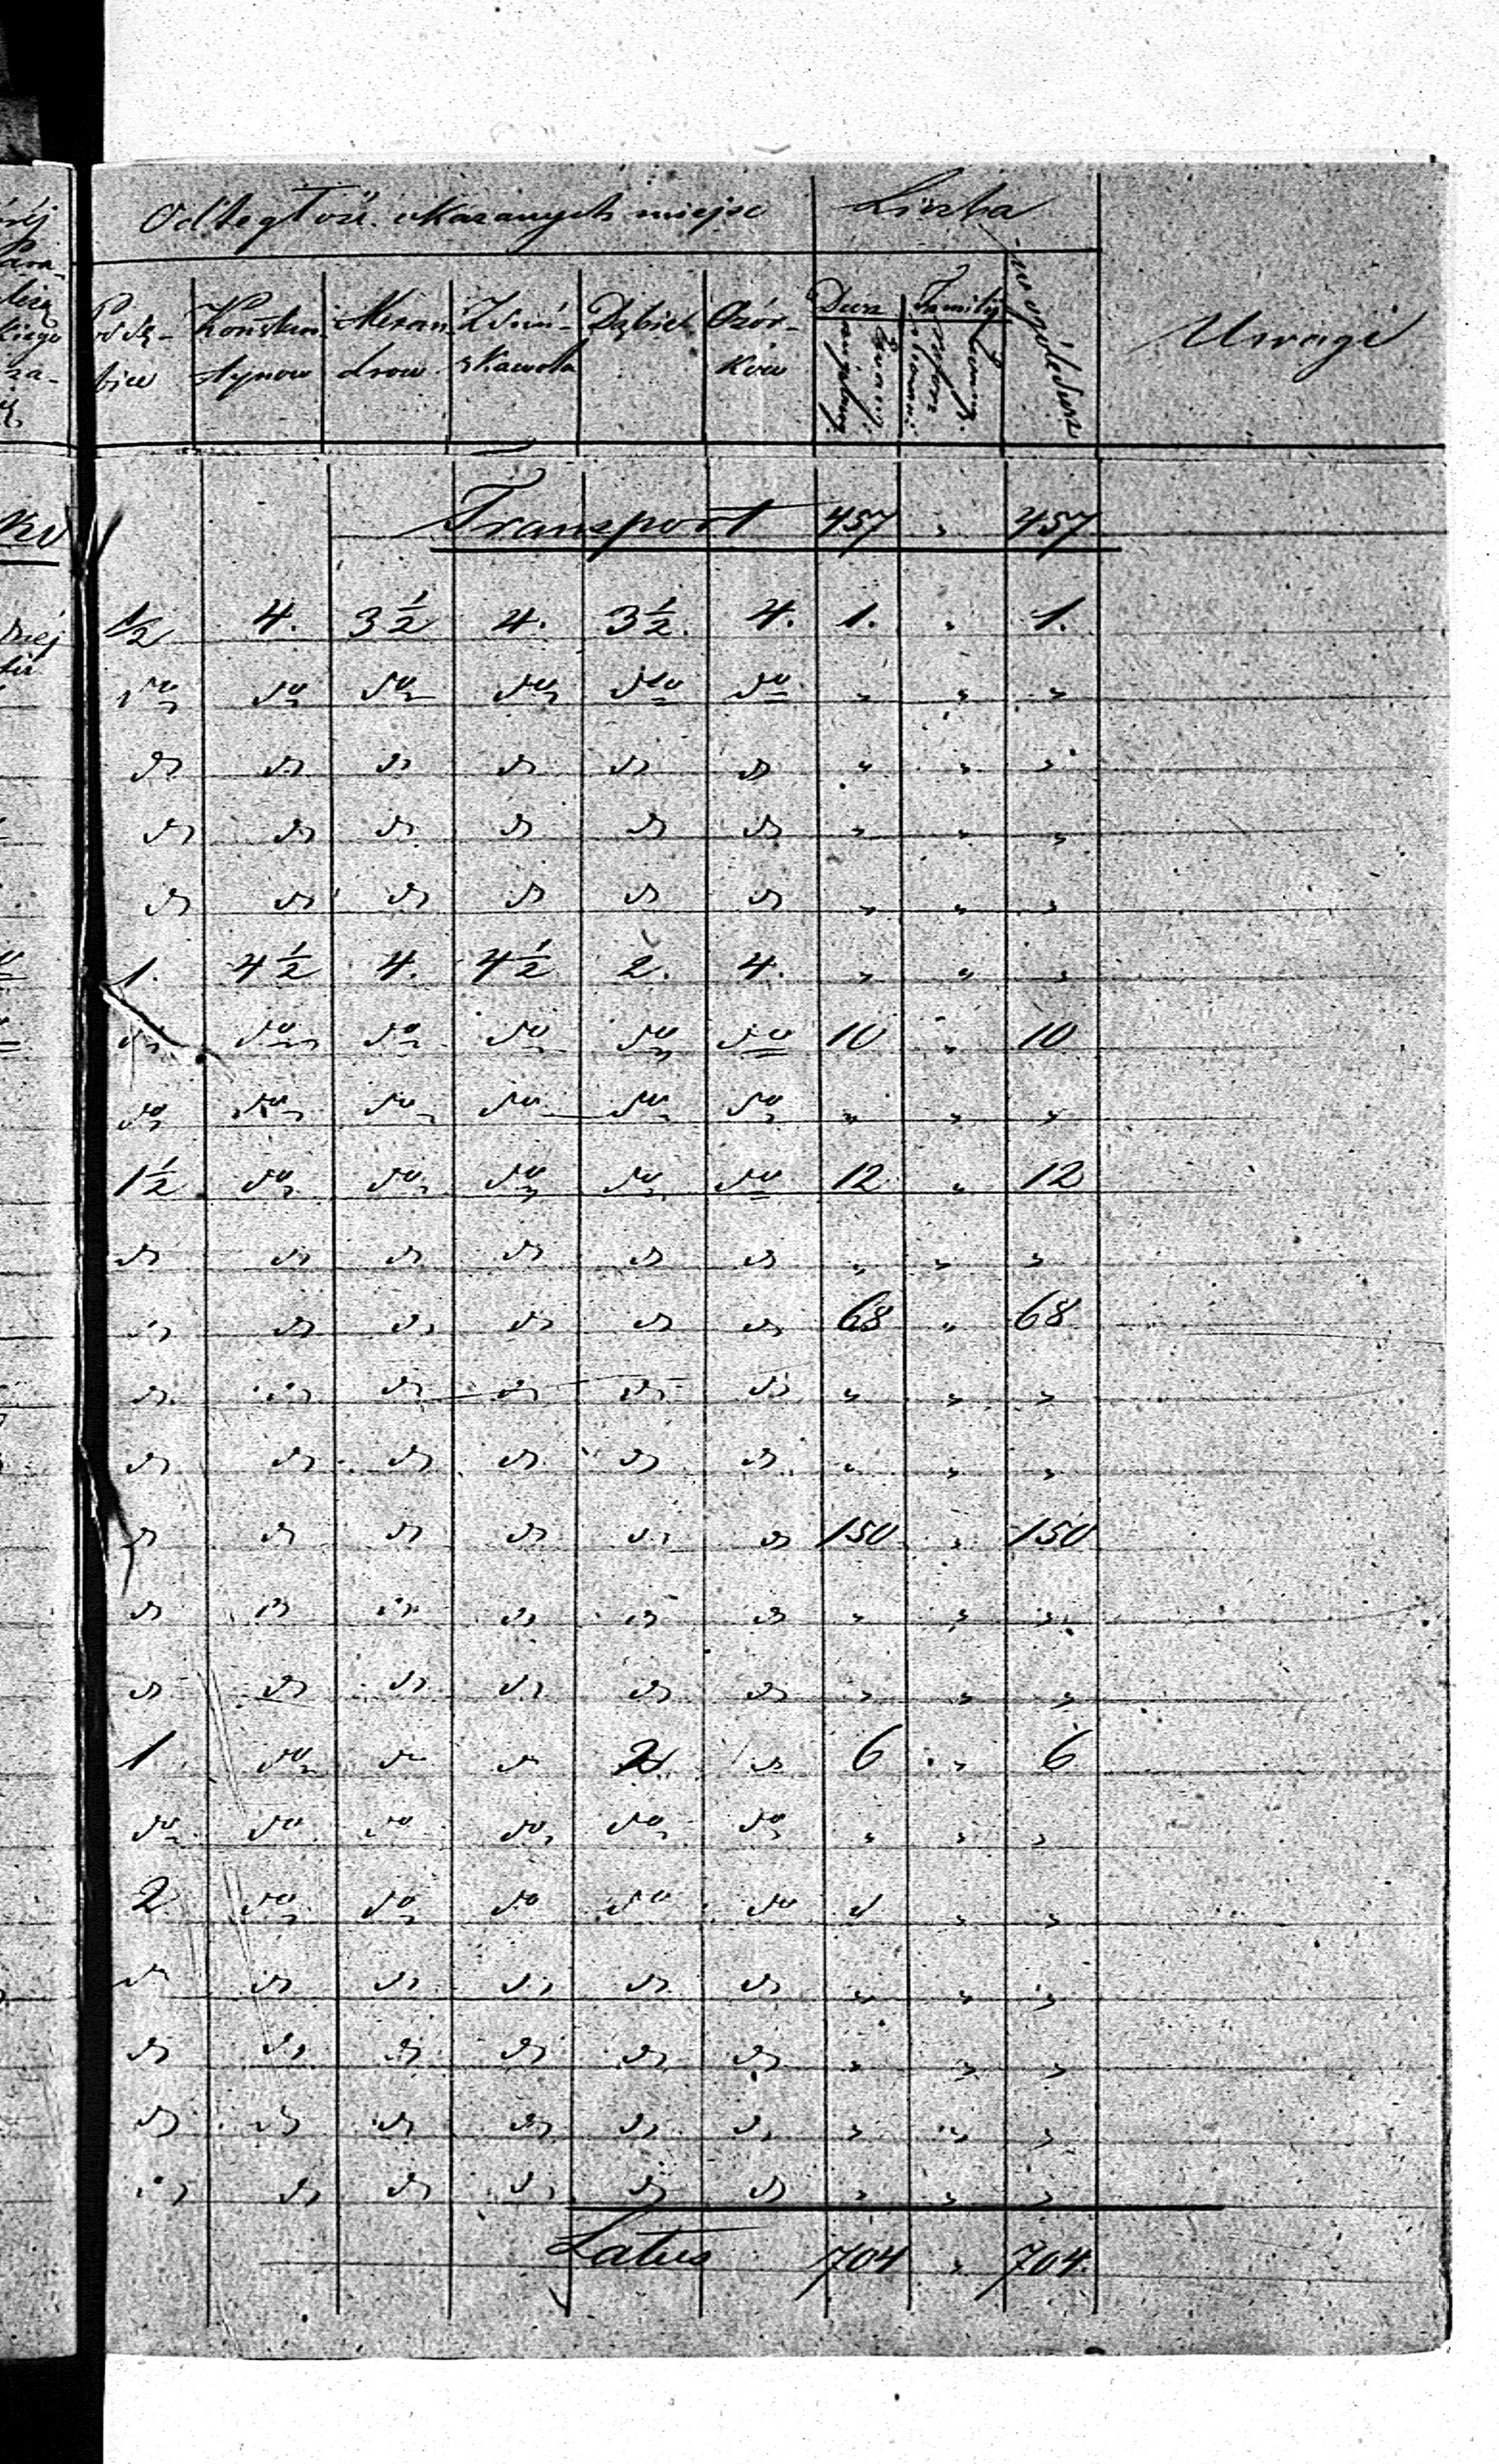 Odległość wkazanych miejsc Liczba
Poddę-bice Konstan-tynow Alexan-drow Zduń-skawola Dąbie Ozór-ków Dusz Familij w ogóle dusz Uwagi
Transport 457 " 457
1/2 4. 3 1/2 4. 3 1/2. 4. 1. " 1.
do do do do do do " " "
do do do do do do " " "
do do do do do do " " "
do do do do do do " " "
1. 4 1/2 4. 4 1/2 2. 4. " " "
do do do do do do 10 " 10
do do do do do do " " "
1 1/2 do do do do do 12 " 12
do do do do do do " " "
do do do do do do 68 " 68
do do do do do do " " "
do do do do do do " " "
do do do do do do 150 " 150
do do do do do do " " "
do do do do do do " " "
1 do do do 2 do 6 " 6
do do do do do do " " "
2 do do do do do " "
do do do do do do " " "
do do do do do do " " "
do do do do do do " " "
do do do do do do " " "
Latus 704 " 704.